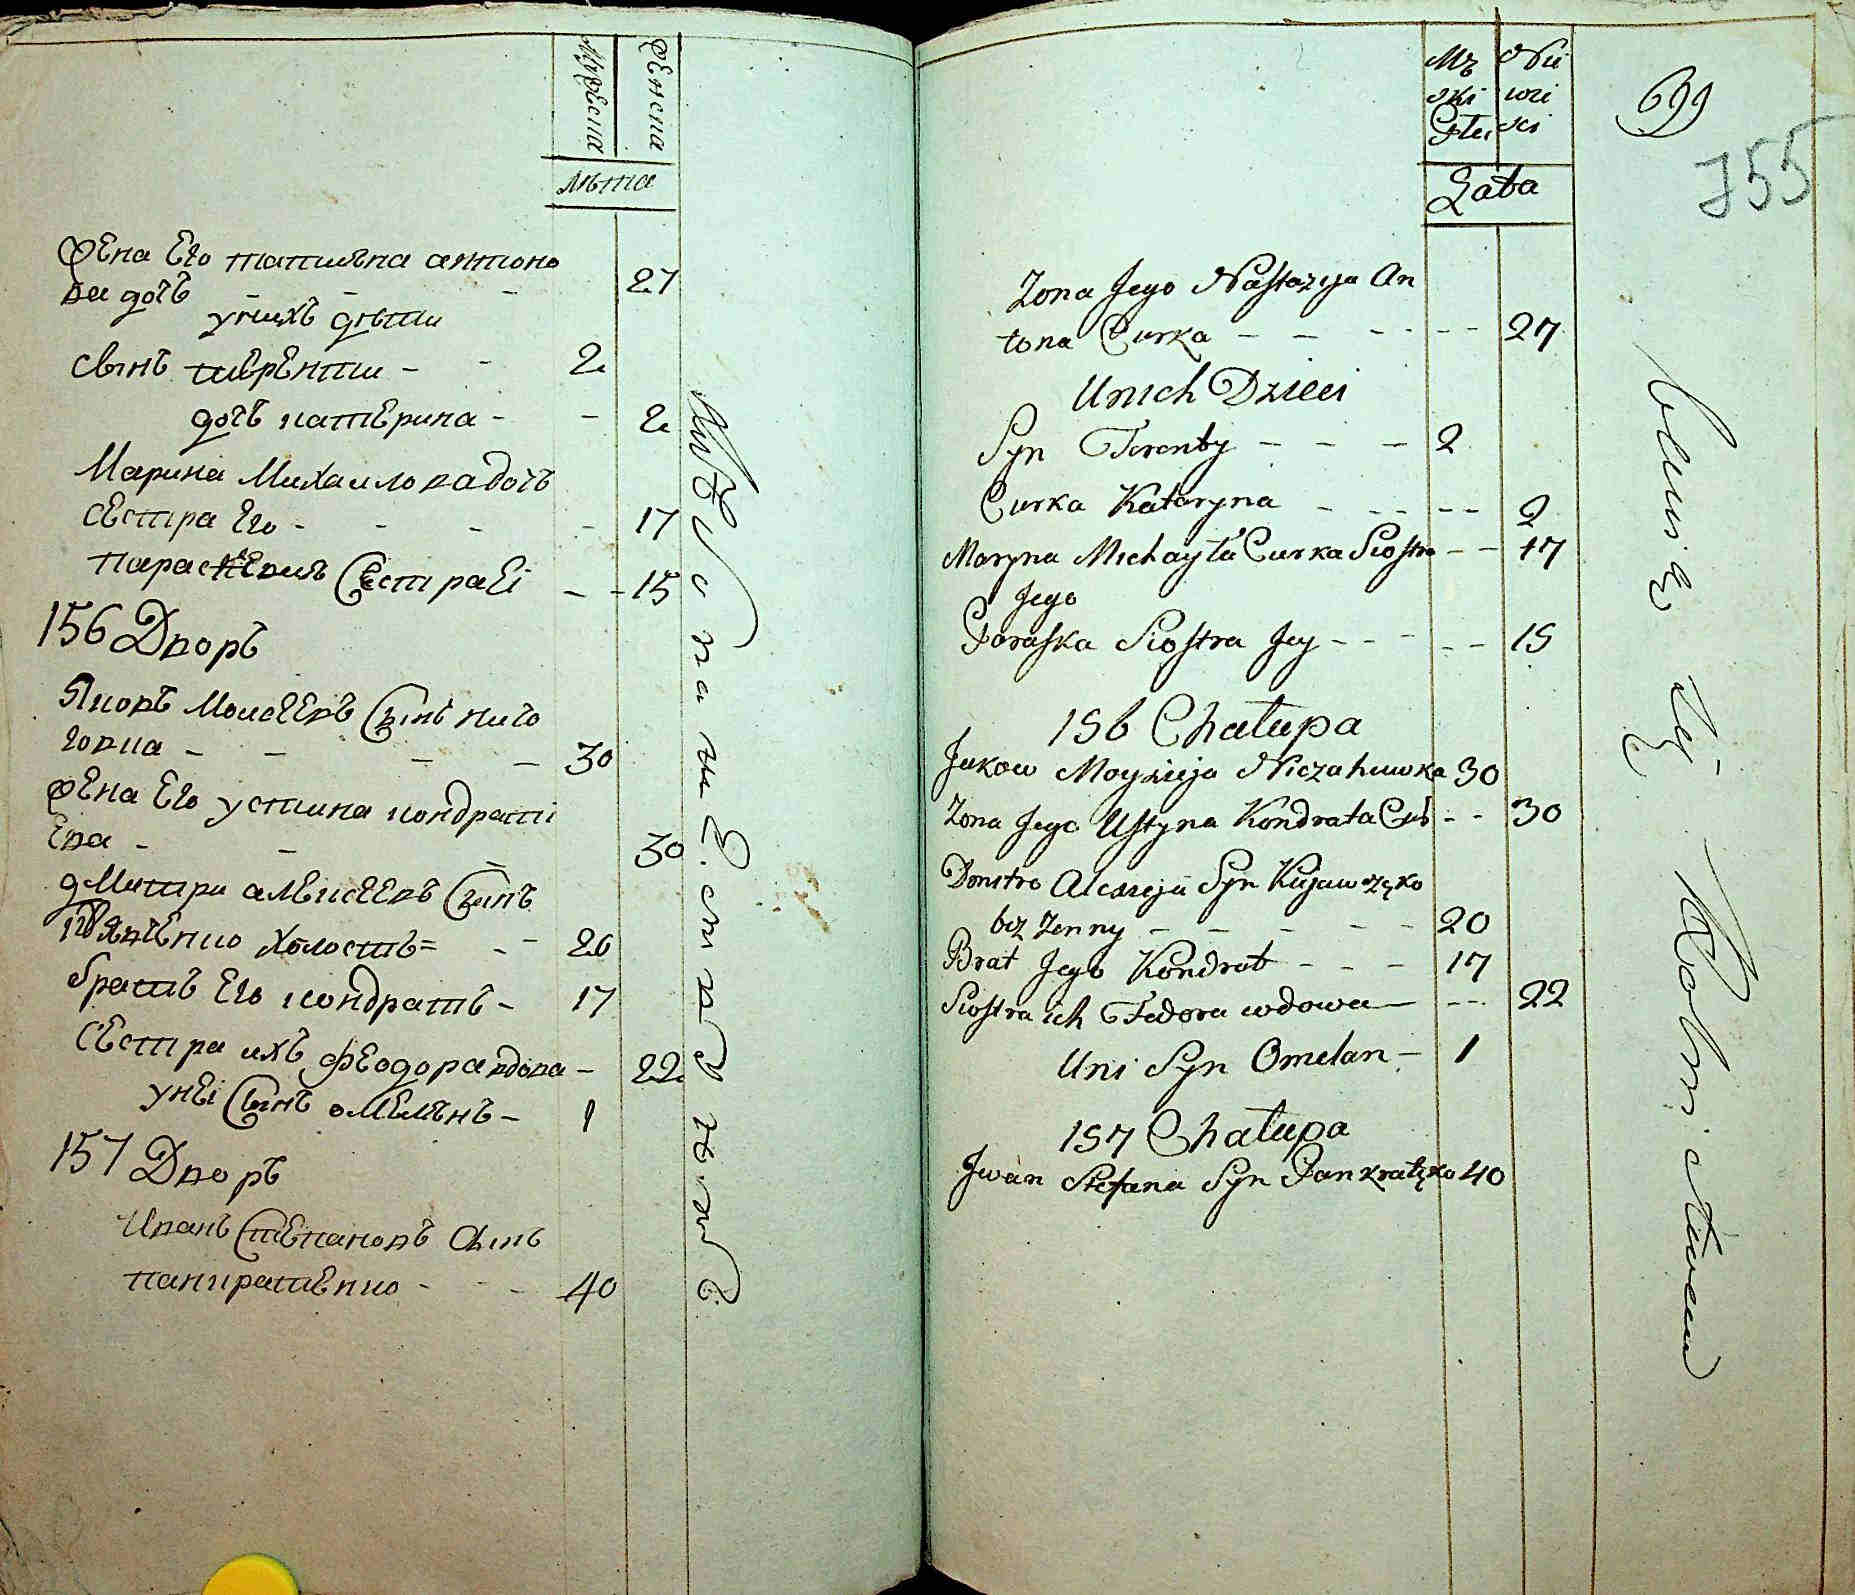 Мужеска
Женска
лѣта
жена его татияна антоно
ва дочь - - - 27
у нихъ дѣти
сынъ терентии - - 2
дочь катерина - - 2
Марина Михаилова дочь
сестра его - - - - 17
параскевия Сестра еі - - 15
156 Дворъ
Яковъ Моисеевъ Сынъ ничо
говка - - - - 30
жена его устина кондрати
ева - - - 30
дмитри алексеевъ Сынъ
холостъ = - - 20
братъ его кондратъ - 17
сестра ихъ феодора вдова - 22
у неі Сынъ омелянъ - 1
157 Дворъ
Иванъ Степановъ Сынъ
панкратенко - - - 40
Mę
ski
Płci
Nie
wie
sci
Lata
699
755
Zona Jego Nastazija An
tona Curka - - - - - - 27
Unich Dzieci
Syn Terenty - - - 2
Curka Kataryna - - - - - 2
Maryna Michayła Curka Siostra - - 17
Jego
Paraska Siostra Jey - - - - - 15
156 Chałupa
Jakow Moyzieja Niczahuwka 30
Zona Jego Ustyna Kondrata Cur - - 30
Dmitro Alexieja Syn Kujawczęko
bez Zenny - - - - - 20
Brat Jego Kondrat - - - 17
Siostra ich Fedora wdowa - - - 22
Uni Syn Omelan - 1
157 Chałupa
Jwan Stefana Syn Pankratęko 40